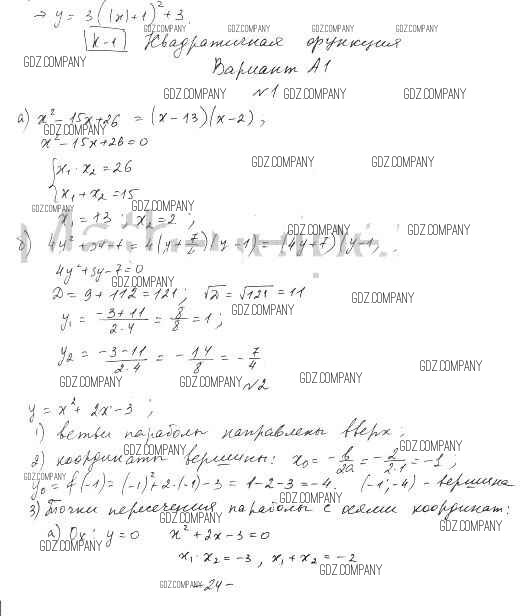 ⇒ y = 3(|x|+1)² + 3.
GDZ.COMPANY GDZ.COMPANY GDZ.COMPANY GDZ.COMPANY
К-1 Квадратичная функция
GDZ.COMPANY
Вариант А1
GDZ.COMPANY №1 GDZ.COMPANY GDZ.COMPANY
а) x² - 15x + 26 = (x - 13)(x - 2),
GDZ.COMPANY
x² - 15x + 26 = 0
GDZ.COMPANY GDZ.COMPANY
x₁ · x₂ = 26
x₁ + x₂ = 15
GDZ.COMPANY GDZ.COMPANY
x₁ = 13; x₂ = 2;
GDZ.COMPANY GDZ.COMPANY
б) 4y² + 3y - 7 = 4(y + 7/4)(y - 1) = (4y + 7)(y - 1),
GDZ.COMPANY
4y² + 3y - 7 = 0
GDZ.COMPANY
D = 9 + 112 = 121; √D = √121 = 11
GDZ.COMPANY
y₁ = (-3+11)/(2·4) = 8/8 = 1;
GDZ.COMPANY
y₂ = (-3-11)/(2·4) = -14/8 = -7/4
GDZ.COMPANY
GDZ.COMPANY GDZ.COMPANY №2 GDZ.COMPANY
y = x² + 2x - 3;
1) ветви параболы направлены вверх;
GDZ.COMPANY GDZ.COMPANY
2) координаты вершины: x₀ = -b/2a = -2/2·1 = -1,
GDZ.COMPANY GDZ.COMPANY
y₀ = f(-1) = (-1)² + 2·(-1) - 3 = 1 - 2 - 3 = -4. (-1; -4) - вершина
GDZ.COMPANY
3) Точки пересечения параболы с осями координат:
GDZ.COMPANY GDZ.COMPANY
а) Ox: y = 0 x² + 2x - 3 = 0
GDZ.COMPANY
x₁ · x₂ = -3, x₁ + x₂ = -2
GDZ.COMPANY
GDZ.COMPANY - 24 -